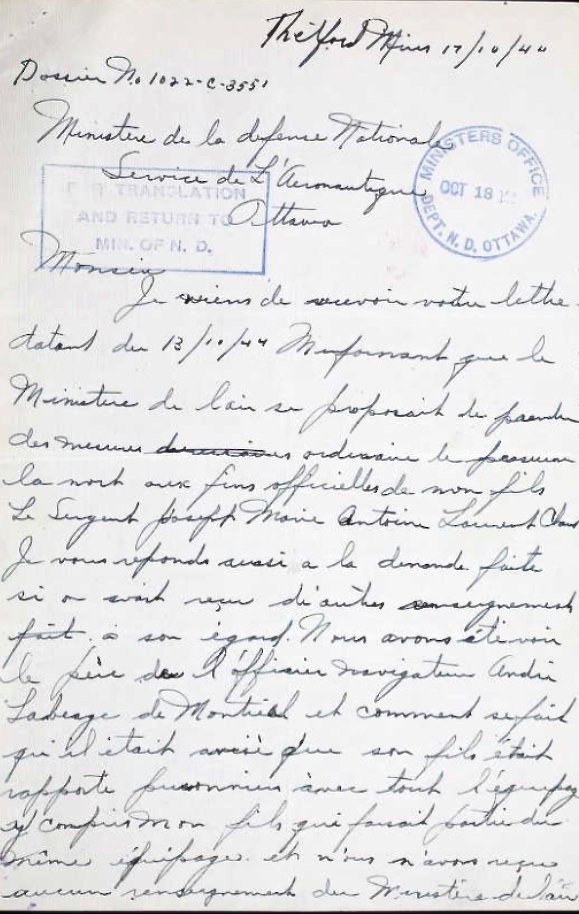 Thetford Mines 17/10/44
Dossier No 1022-C-3551
Ministere de la defense Nationale
Service de L'Aeronautique
Ottawa
MINISTERS OFFICE
OCT 18
DEPT. N. D. OTTAWA.
FOR TRANSLATION
AND RETURN TO
MIN. OF N. D.
Monsieur
Je viens de recevoir votre lettre
datant du 13/10/44 M'informant que le
Ministere de l'air se proposait de prendre
des mesures ordinaire de
la mort aux fins officielles de mon fils
Le Sergent Joseph Marie Antoine Laurent
Je vous reponds aussi a la demande faite
si on avait reçu d'autres renseignements
fait à son égard. Nous avons été voir
le père de l'officier navigateur André
Laberge de Montréal et comment se fait
qu'il était avisé que son fils était
rapporte prisonnier avec tout l'équipage
y compris Mon fils qui faisait partie du
même équipage. et n'ous n'avons reçue
aucun renseignement du Ministère de l'air